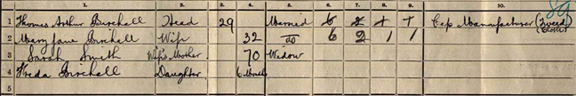 1. 2. 3. 4. 5. 6. 7. 8. 9. 10.
1 Thomas Arthur Burchall Head 29 Married 6 2 1 1 Cap Manufacturer (Tweed
2 Mary Jane Burchall Wife 32 do 6 2 1 1
3 Sarah Smith Wife's Mother 70 Widow
4 Freda Burchall Daughter 6 Month
5